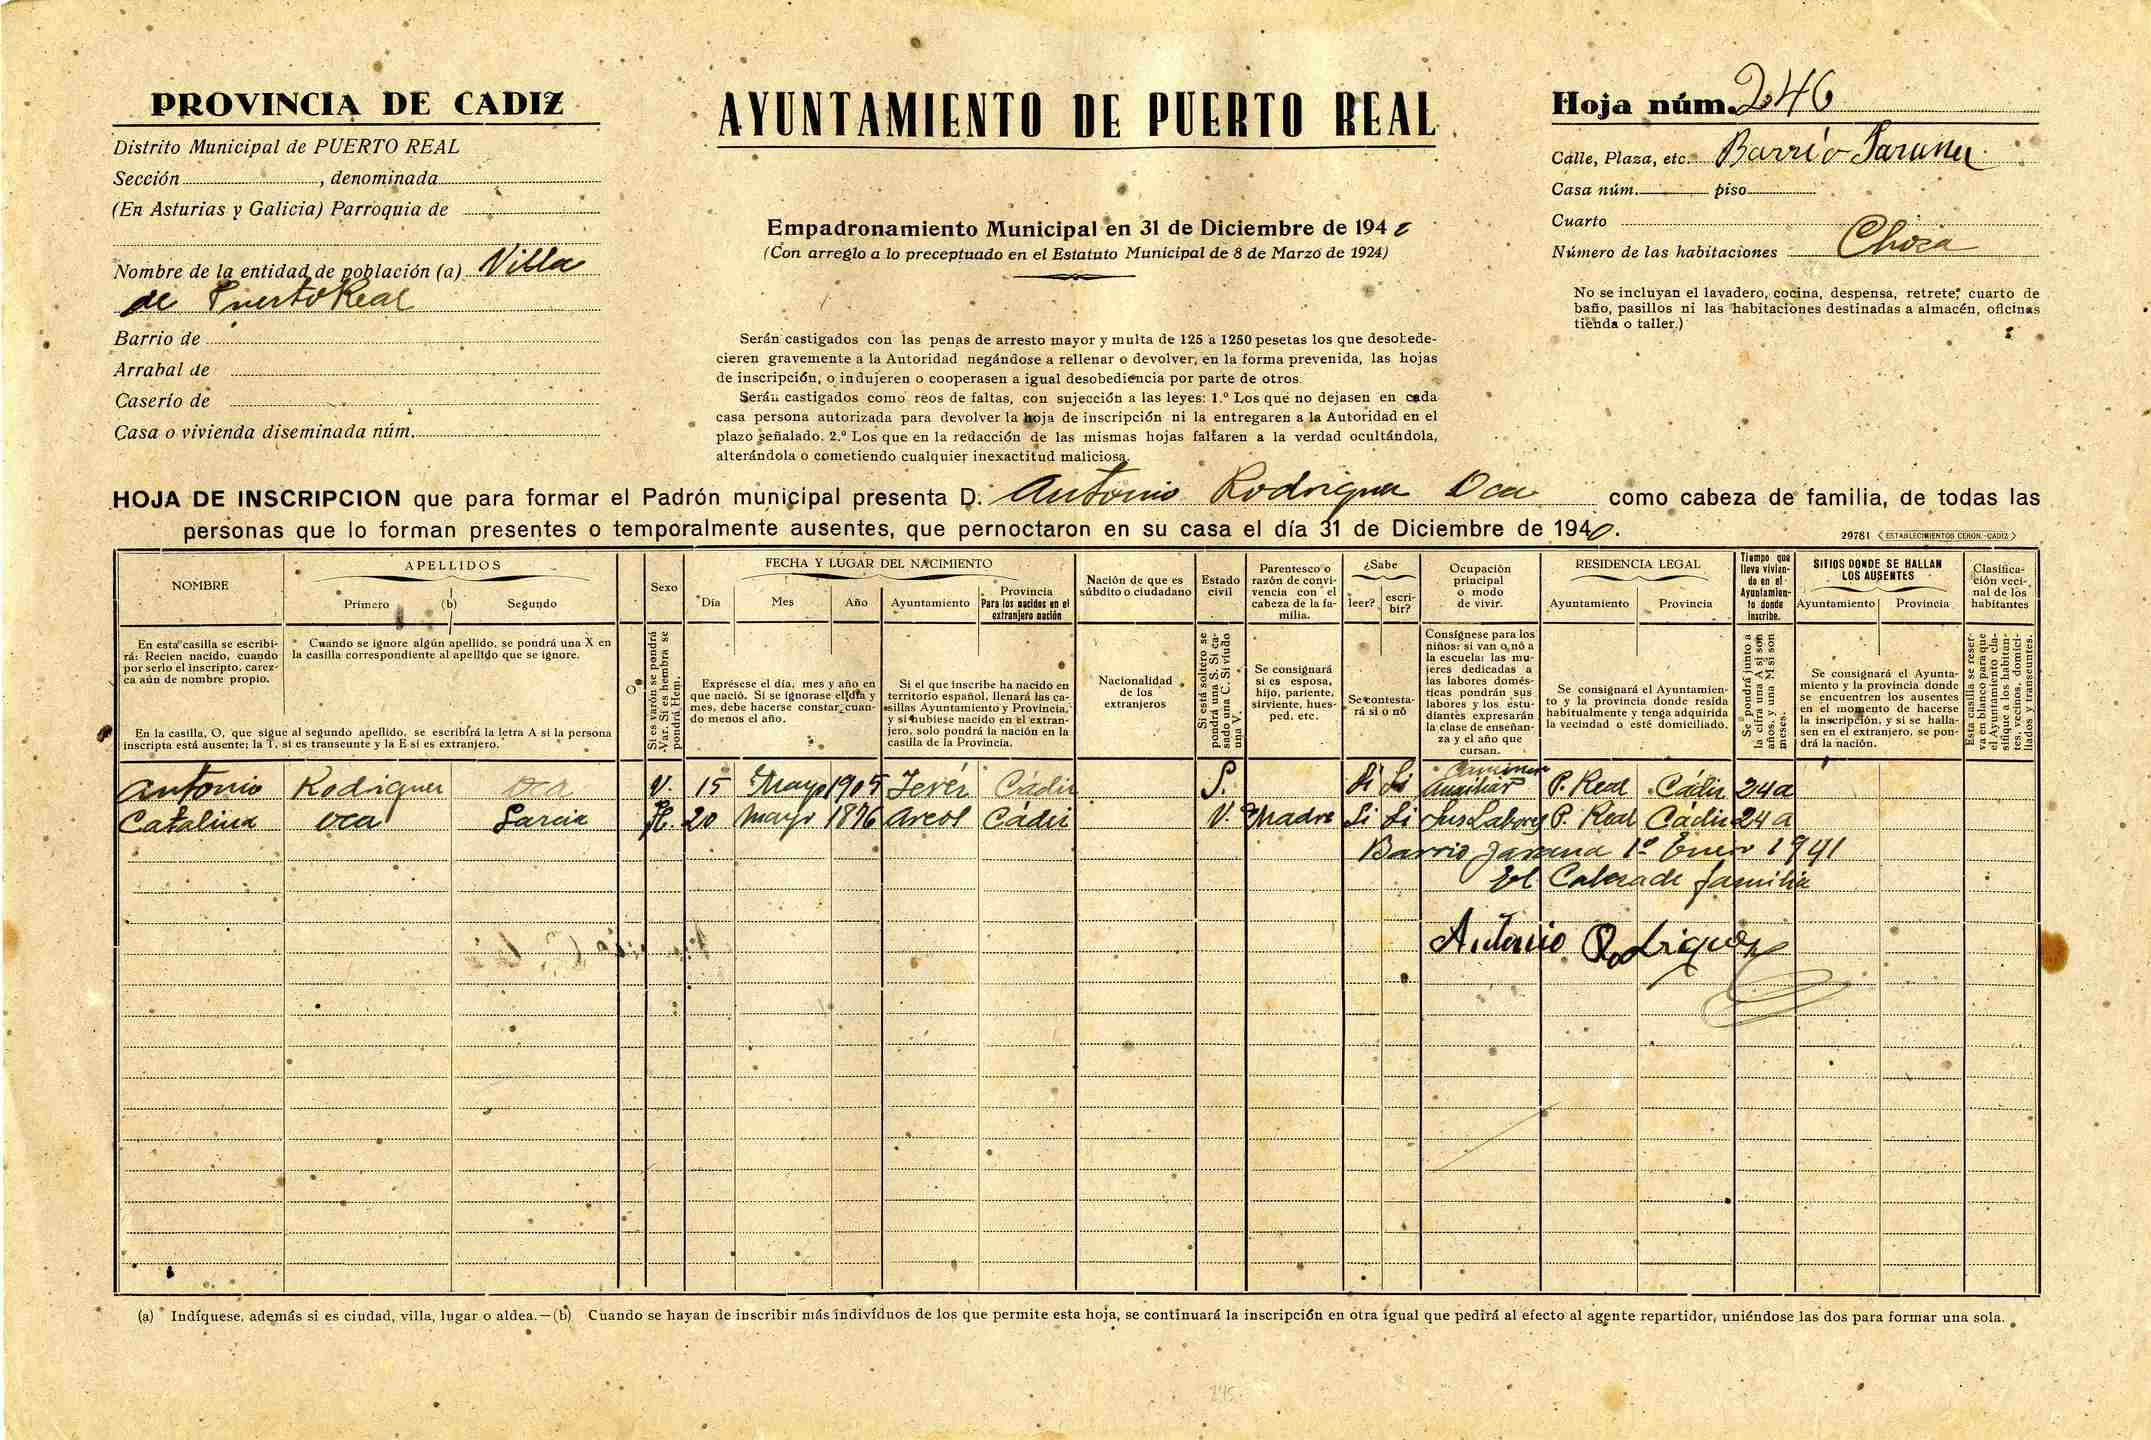 PROVINCIA DE CADIZ
Distrito Municipal de PUERTO REAL
Sección , denominada
(En Asturias y Galicia) Parroquia de
Nombre de la entidad de población (a) Villa
de Puerto Real
Barrio de
Arrabal de
Caserío de
Casa o vivienda diseminada núm.
AYUNTAMIENTO DE PUERTO REAL
Empadronamiento Municipal en 31 de Diciembre de 194
(Con arreglo a lo preceptuado en el Estatuto Municipal de 8 de Marzo de 1924)
Serán castigados con las penas de arresto mayor y multa de 125 a 1250 pesetas los que desobede-
cieren gravemente a la Autoridad negándose a rellenar o devolver, en la forma prevenida, las hojas
de inscripción, o indujeren o cooperasen a igual desobediencia por parte de otros.
Serán castigados como reos de faltas, con sujección a las leyes: 1.º Los que no dejasen en cada
casa persona autorizada para devolver la hoja de inscripción ni la entregaren a la Autoridad en el
plazo señalado. 2.º Los que en la redacción de las mismas hojas faltaren a la verdad ocultándola,
alterándola o cometiendo cualquier inexactitud maliciosa.
Hoja núm. 246
Calle, Plaza, etc. Barrio Jarana
Casa núm. piso
Cuarto
Número de las habitaciones Choza
No se incluyan el lavadero, cocina, despensa, retrete, cuarto de
baño, pasillos ni las habitaciones destinadas a almacén, oficinas
tienda o taller.)
HOJA DE INSCRIPCION que para formar el Padrón municipal presenta D. Antonio Rodriguez Oca como cabeza de familia, de todas las
personas que lo forman presentes o temporalmente ausentes, que pernoctaron en su casa el día 31 de Diciembre de 1940.
29781 ESTABLECIMIENTOS CERON.-CADIZ
NOMBRE
APELLIDOS
Primero (b) Segundo
Sexo
FECHA Y LUGAR DEL NACIMIENTO
Día Mes Año Ayuntamiento
Provincia
Para los nacidos en el
extranjero nación
Nación de que es
súbdito o ciudadano
Estado
civil
Parentesco o
razón de convi-
vencia con el
cabeza de la fa-
milia.
¿Sabe
leer? escri-
bir?
Ocupación
principal
o modo
de vivir.
RESIDENCIA LEGAL
Ayuntamiento Provincia
Tiempo que
lleva vivien-
do en el
Ayuntamien-
to donde
inscribe.
SITIOS DONDE SE HALLAN
LOS AUSENTES
Ayuntamiento Provincia
Clasifica-
ción veci-
nal de los
habitantes
En esta casilla se escribi-
rá: Recien nacido, cuando
por serlo el inscripto, carez-
ca aún de nombre propio.
Cuando se ignore algún apellido, se pondrá una X en
la casilla correspondiente al apellido que se ignore.
En la casilla, O, que sigue al segundo apellido, se escribirá la letra A si la persona
inscripta está ausente; la T, si es transeunte y la E si es extranjero.
O
Si es varón se pondrá
Var. Si es hembra se
pondrá Hem.
Exprésese el día, mes y año en
que nació. Si se ignorase el día y
mes, debe hacerse constar cuan-
do menos el año.
Si el que inscribe ha nacido en
territorio español, llenará las ca-
sillas Ayuntamiento y Provincia,
y si hubiese nacido en el extran-
jero, solo pondrá la nación en la
casilla de la Provincia.
Nacionalidad
de los
extranjeros
Si está soltero se
pondrá una S. Si ca-
sado una C. Si viudo
una V.
Se consignará
si es esposa,
hijo, pariente,
sirviente, hues-
ped, etc.
Se contesta-
rá sí o nó
Consígnese para los
niños: si van o nó a
la escuela: las mu-
jeres dedicadas a
las labores domés-
ticas pondrán sus
labores y los estu-
diantes expresarán
la clase de enseñan-
za y el año que
cursan.
Se consignará el Ayuntamien-
to y la provincia donde resida
habitualmente y tenga adquirida
la vecindad o esté domiciliado.
Se pondrá junto a
la cifra una A si son
años, y una M si son
meses.
Se consignará el Ayunta-
miento y la provincia donde
se encuentren los ausentes
en el momento de hacerse
la inscripción, y si se halla-
sen en el extranjero, se pon-
drá la nación.
Esta casilla se reser-
va en blanco para que
el Ayuntamiento cla-
sifique a los habitan-
tes, vecinos, domici-
liados y transeuntes.
Antonio Rodriguez Oca V. 15 Mayo 1905 Jeréz Cádiz S. Si Si Auxiliar P. Real Cádiz 24 a
Catalina Oca Garcia H. 20 Mayo 1876 Arcos Cádiz V. Madre Si Si Sus Labores P. Real Cádiz 24 a
Barrio Jarana 1º Enero 1941
El Cabeza de familia
Antonio Rodriguez
(a) Indíquese, además si es ciudad, villa, lugar o aldea.—(b) Cuando se hayan de inscribir más indivíduos de los que permite esta hoja, se continuará la inscripción en otra igual que pedirá al efecto al agente repartidor, uniéndose las dos para formar una sola.